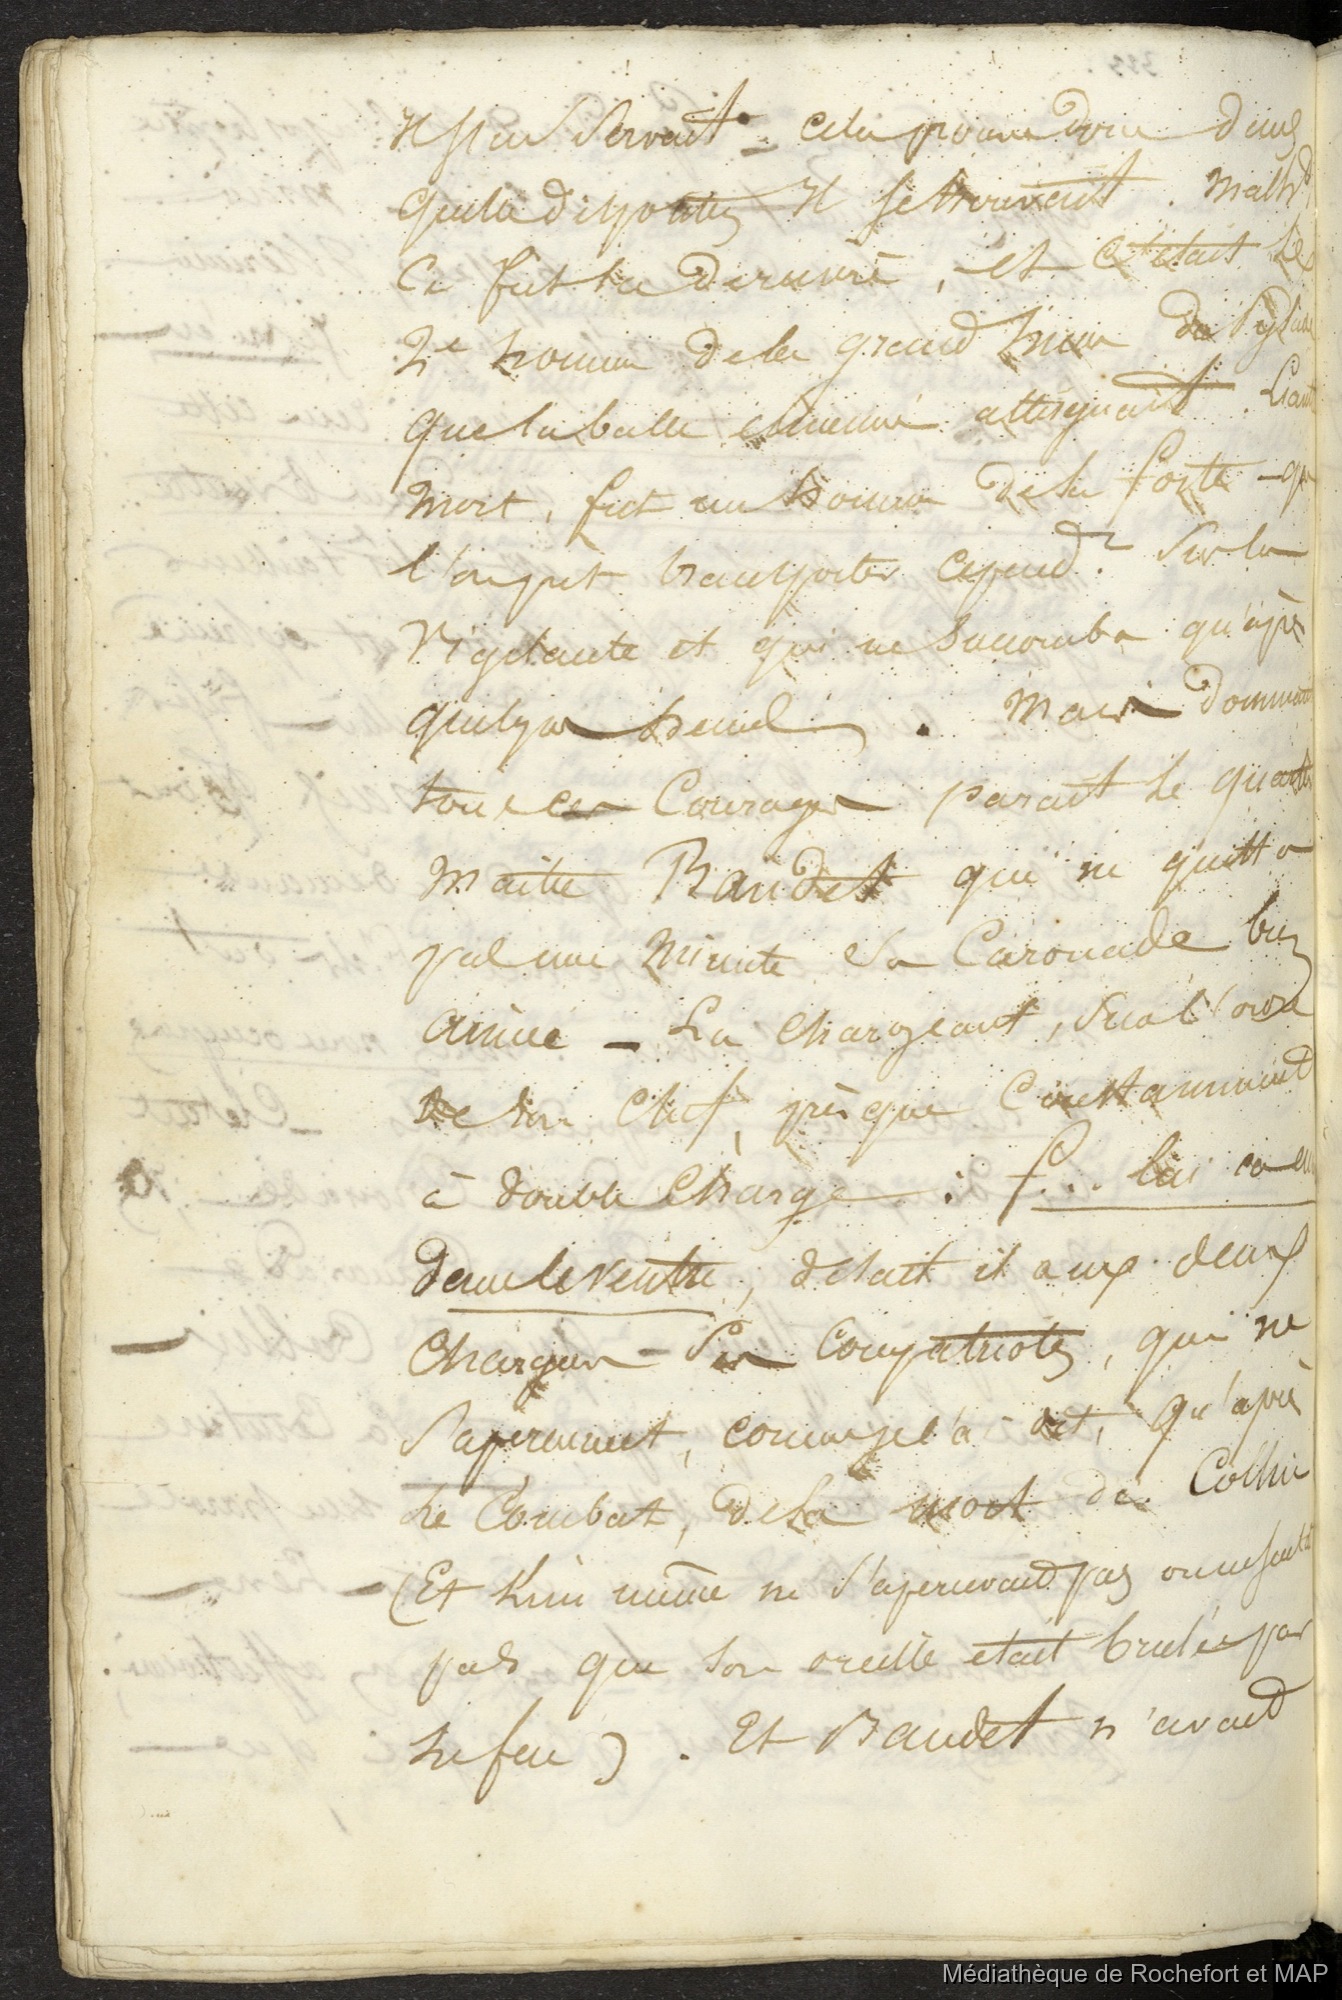 Ils s'en Servait - cela prouve donc dans
quelle dispositions Il se trouvait. Malhd
Ce fut la derniere, et c'etait le
2e homme de la grand hune du Pylade
que la balle ennemie atteignait. L'autre
mort, fut un homme de la forte - que
l'on put transporter cepend.t Sur la
Vigilante et qui ne Succomba qu'après
quelques heures. Mais dominant
tous ces Courages parait le quartier
Maitre Baudet qui ne quitta
pas une Minute Sa Caronade bien
aimée - La Chargeant, Sur l'ordre
de son Chef, presque Constamment
à double charge : f... lui ca en
dans le ventre, disait il aux deux
Chargeurs - Ses Compatriotes, qui ne
S'aperçurent, comme je l'ai dit, qu'après
le Combat, de la mort de Collin
(Et Lui même ne S'apercevait pas ou ne sentait
pas que son oreille etait brulée par
le feu). Et Baudet n'avait
Médiathèque de Rochefort et MAP